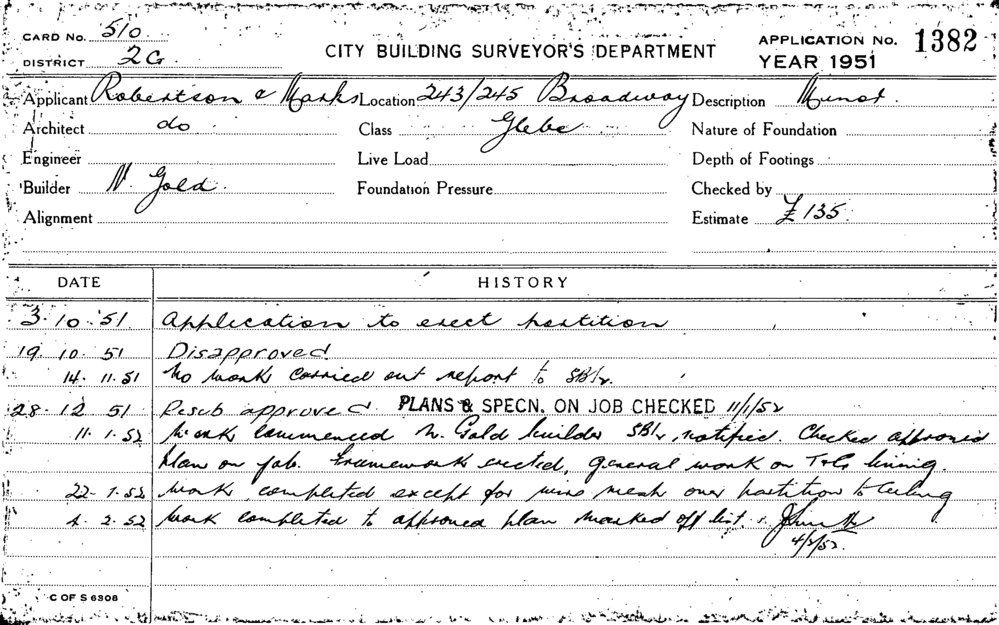 CARD No. 510
DISTRICT 2G
CITY BUILDING SURVEYOR'S DEPARTMENT
APPLICATION No. 1382
YEAR 1951
Applicant Robertson & Marks Location 243/245 Broadway Description Minor.
Architect do Class Glebe Nature of Foundation
Engineer Live Load Depth of Footings
Builder N. Gold. Foundation Pressure Checked by
Alignment Estimate £135.
DATE HISTORY
3. 10. 51 Application to erect partition
19. 10. 51 Disapproved
14. 11. 51 No work carried out report to
28. 12 51 Resub approved PLANS & SPECN. ON JOB CHECKED 11/1/52
11. 1. 52 Work commenced N. Gold builder notified. Checked approved
plan on job. Framework erected, general work on T&G lining.
22. 1. 52 Work completed except for wire mesh over partition to Ceiling
4. 2. 52 Work completed to approved plan marked off list.
4/2/52.
C OF S 6308